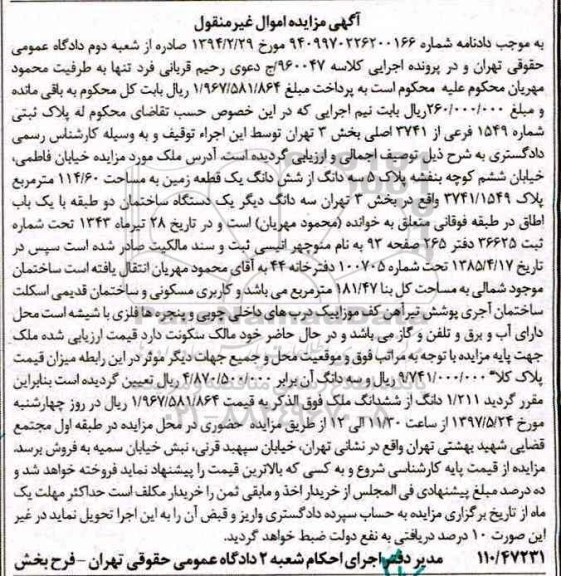 آگهی مزایده اموال غیرمنقول
به موجب دادنامه شماره ۹۴۰۹۹۷۰۲۲۶۲۰۰۱۶۶ مورخ ۱۳۹۴/۲/۲۹ صادره از شعبه دوم دادگاه عمومی
حقوقی تهران و در پرونده اجرایی کلاسه ۹۶۰۰۴۷/ج دعوی رحیم قربانی فرد تنها به طرفیت محمود
مهریان محکوم علیه محکوم است به پرداخت مبلغ ۱/۹۶۷/۵۸۱/۸۶۴ ریال بابت کل محکوم به باقی مانده
و مبلغ ۲۶۰/۰۰۰/۰۰۰ریال بابت نیم اجرایی که در این خصوص حسب تقاضای محکوم له پلاک ثبتی
شماره ۱۵۴۹ فرعی از ۳۷۴۱ اصلی بخش ۳ تهران توسط این اجراء توقیف و به وسیله کارشناس رسمی
دادگستری به شرح ذیل توصیف اجمالی و ارزیابی گردیده است. آدرس ملک مورد مزایده خیابان فاطمی،
خیابان ششم کوچه بنفشه پلاک ۵ سه دانگ از شش دانگ یک قطعه زمین به مساحت ۱۱۴/۶۰ مترمربع
پلاک ۳۷۴۱/۱۵۴۹ واقع در بخش ۳ تهران سه دانگ دیگر یک دستگاه ساختمان دو طبقه با یک باب
اطاق در طبقه فوقانی متعلق به خوانده (محمود مهریان) است و در تاریخ ۲۸ تیرماه ۱۳۴۳ تحت شماره
ثبت ۳۶۶۲۵ دفتر ۲۶۵ صفحه ۹۳ به نام منوچهر انیسی ثبت و سند مالکیت صادر شده است سپس در
تاریخ ۱۳۸۵/۴/۱۷ تحت شماره ۱۰۰۷۰۵ دفترخانه ۴۴ به آقای محمود مهریان انتقال یافته است ساختمان
موجود شمالی به مساحت کل بنا ۱۸۱/۴۷ مترمربع می باشد و کاربری مسکونی و ساختمان قدیمی اسکلت
ساختمان آجری پوشش تیرآهن کف موزاییک درب های داخلی چوبی و پنجره ها فلزی با شیشه است محل
دارای آب و برق و تلفن و گاز می باشد و در حال حاضر خود مالک سکونت دارد قیمت ارزیابی شده ملک
جهت پایه مزایده با توجه به مراتب فوق و موقعیت محل و جمیع جهات دیگر موثر در این رابطه میزان قیمت
پلاک کلا" ۹/۷۴۱/۰۰۰/۰۰۰ ریال و سه دانگ آن برابر ۴/۸۷۰/۵۰۰/۰۰۰ ریال تعیین گردیده است بنابراین
مقرر گردید ۱/۲۱۱ دانگ از ششدانگ ملک فوق الذکر به قیمت ۱/۹۶۷/۵۸۱/۸۶۴ ریال در روز چهارشنبه
مورخ ۱۳۹۷/۵/۲۴ از ساعت ۱۱/۳۰ الی ۱۲ از طریق مزایده حضوری در محل مزایده در طبقه اول مجتمع
قضایی شهید بهشتی تهران واقع در نشانی تهران، خیابان سپهبد قرنی، نبش خیابان سمیه به فروش برسد.
مزایده از قیمت پایه کارشناسی شروع و به کسی که بالاترین قیمت را پیشنهاد نماید فروخته خواهد شد و
ده درصد مبلغ پیشنهادی فی المجلس از خریدار اخذ و مابقی ثمن را خریدار مکلف است حداکثر مهلت یک
ماه از تاریخ برگزاری مزایده به حساب سپرده دادگستری واریز و قبض آن را به این اجرا تحویل نماید در غیر
این صورت ۱۰ درصد دریافتی به نفع دولت ضبط خواهد گردید.
۱۱۰/۴۷۲۳۱ مدیر دفتر اجرای احکام شعبه ۲ دادگاه عمومی حقوقی تهران - فرح بخش